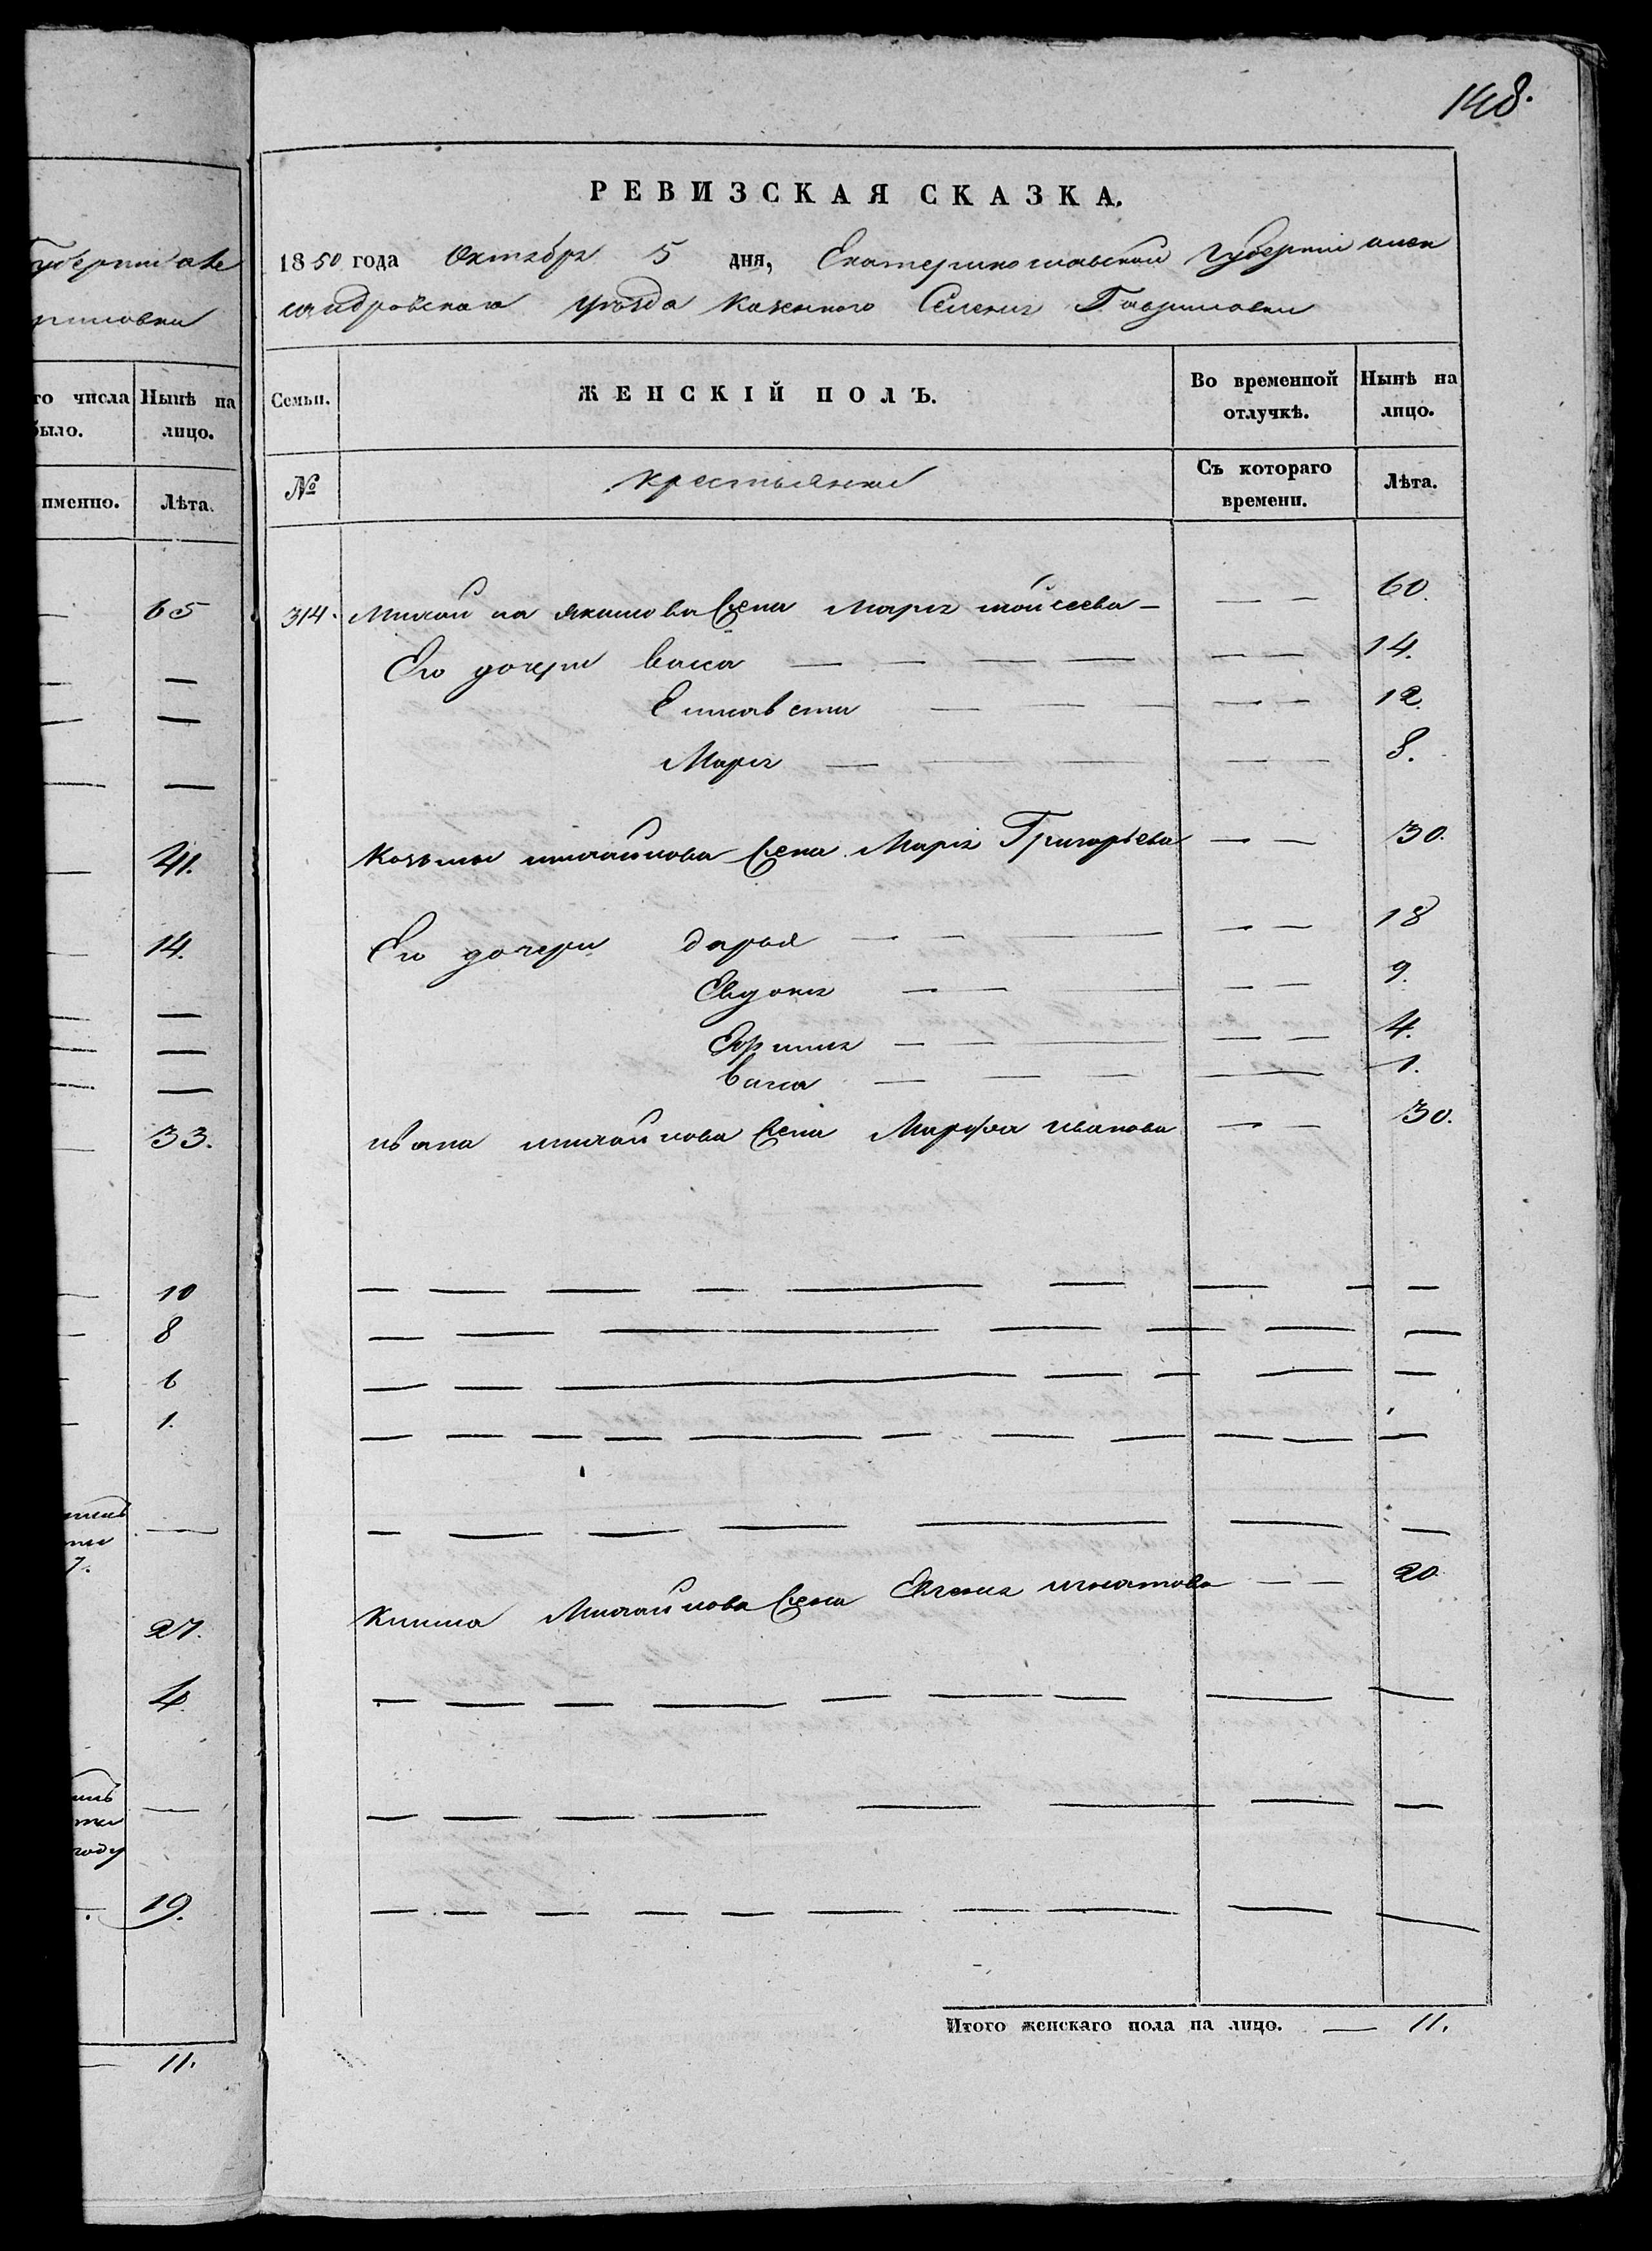 148.
РЕВИЗСКАЯ СКАЗКА.
1850 года Октября 5 дня, Екатеринославской Губерніи алек
сандровскаго уѣзда Казенного Селенія Гавриловки
го числа
было.
Нынѣ на
лицо.
Семьи.
ЖЕНСКІЙ ПОЛЪ.
Во временной
отлучкѣ.
Нынѣ на
лицо.
именно.
Лѣта.
№
Крестьянки
Съ котораго
времени.
Лѣта.
65
314. Михайла Якимова Жена Марія мойсеева — — — 60.
— Его дочери Васса — — — — — — 14.
— Елисавета — — — — — 12.
— Марія — — — — 8.
41. Козьмы михайлова Жена Марія Григорьева — — 30.
14. Его дочери дарья — — — — — 18
— Евдокія — — — — — 9.
— Ефимія — — — — — 4.
— Васса — — — — 1.
33. ивана михайлова Жена Марфа иванова — — 30.
10
8
6
1.
7.
27. Михайлова Жена Евгенія игнатова — — 20
4
году
19.
Итого женскаго пола на лицо. — 11.
11.